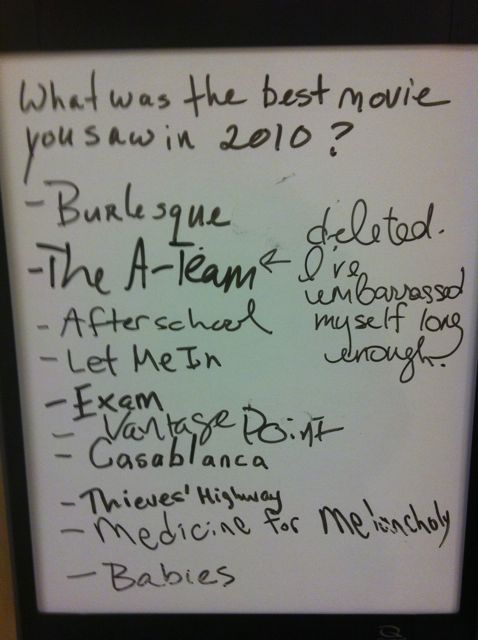 What was the best movie
you saw in 2010?
- Burlesque
- The A-Team ← deleted.
I've
embarrassed
myself long
enough.
- Afterschool
- Let Me In
- Exam
- Vantage Point
- Casablanca
- Thieves' Highway
- Medicine for Melancholy
- Babies